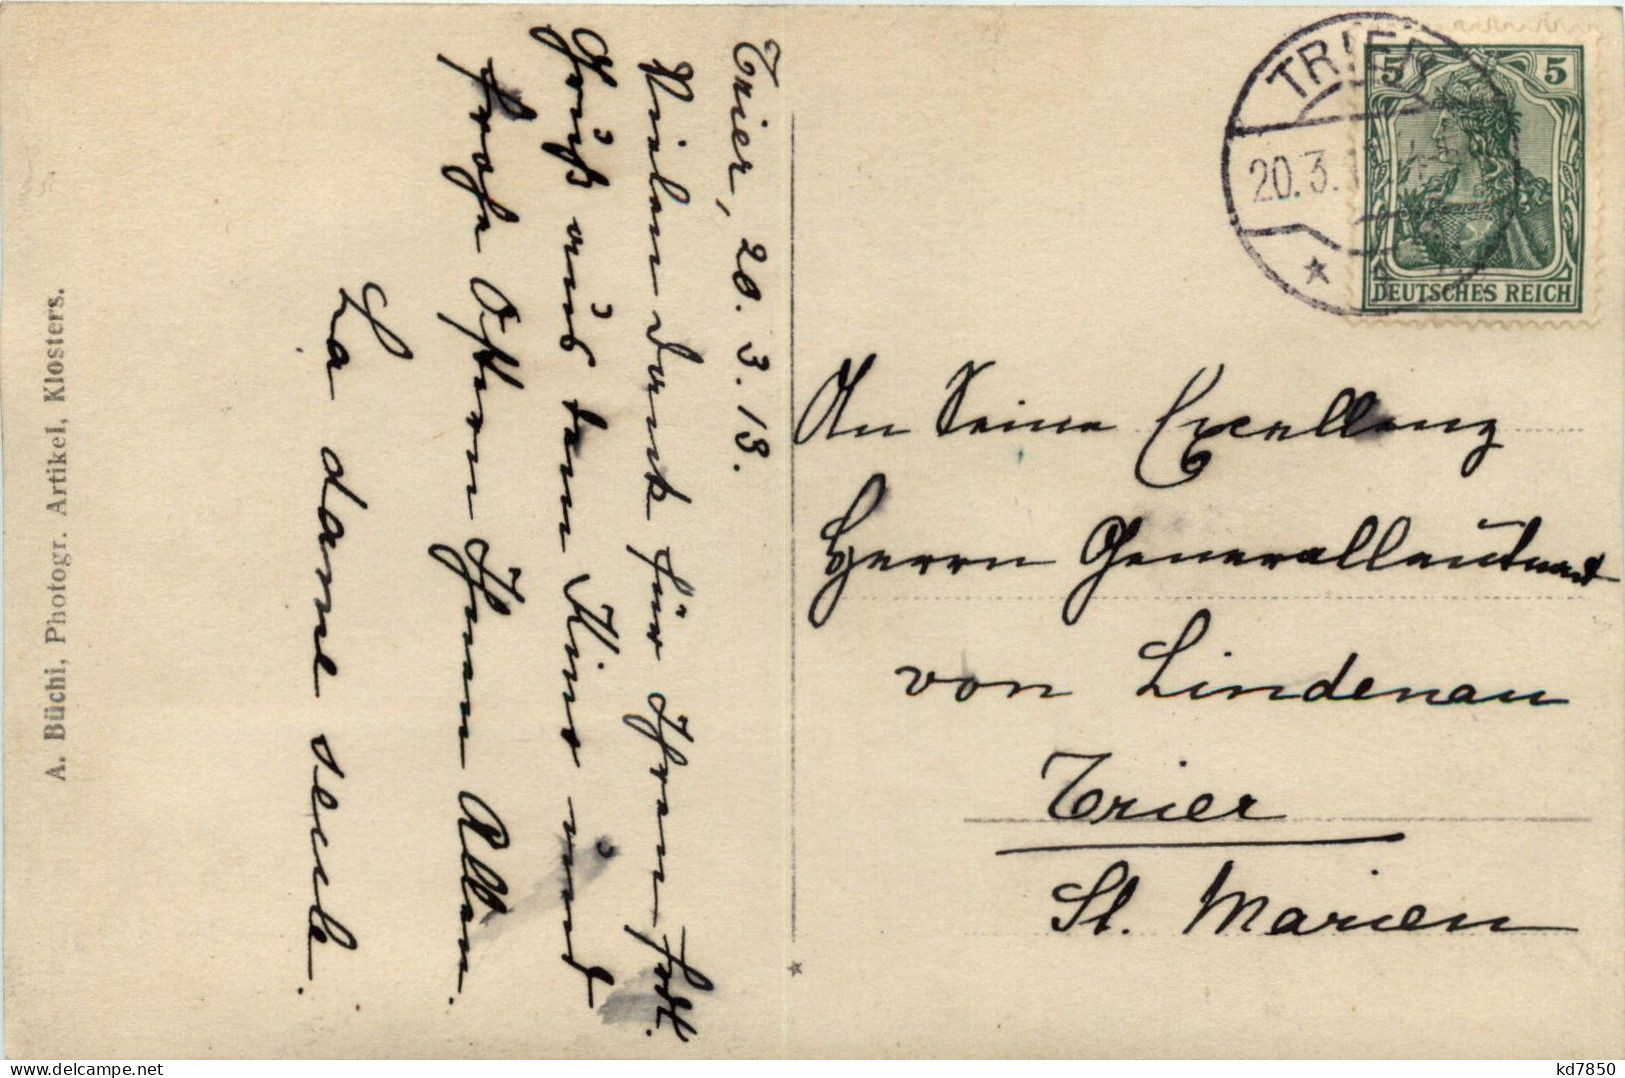 Trier, 20. 3. 13.
Vielen Dank für Ihren
Gruß aus dem Kino und
frohe Ostern Ihnen Allen.
La dame seule.
A. Büchi, Photogr. Artikel, Klosters.
TRIER
20.3.
5 5
DEUTSCHES REICH
An Seine Excellenz
Herrn Generalleutnant
von Lindenau
Trier
St. Marien
kd7850